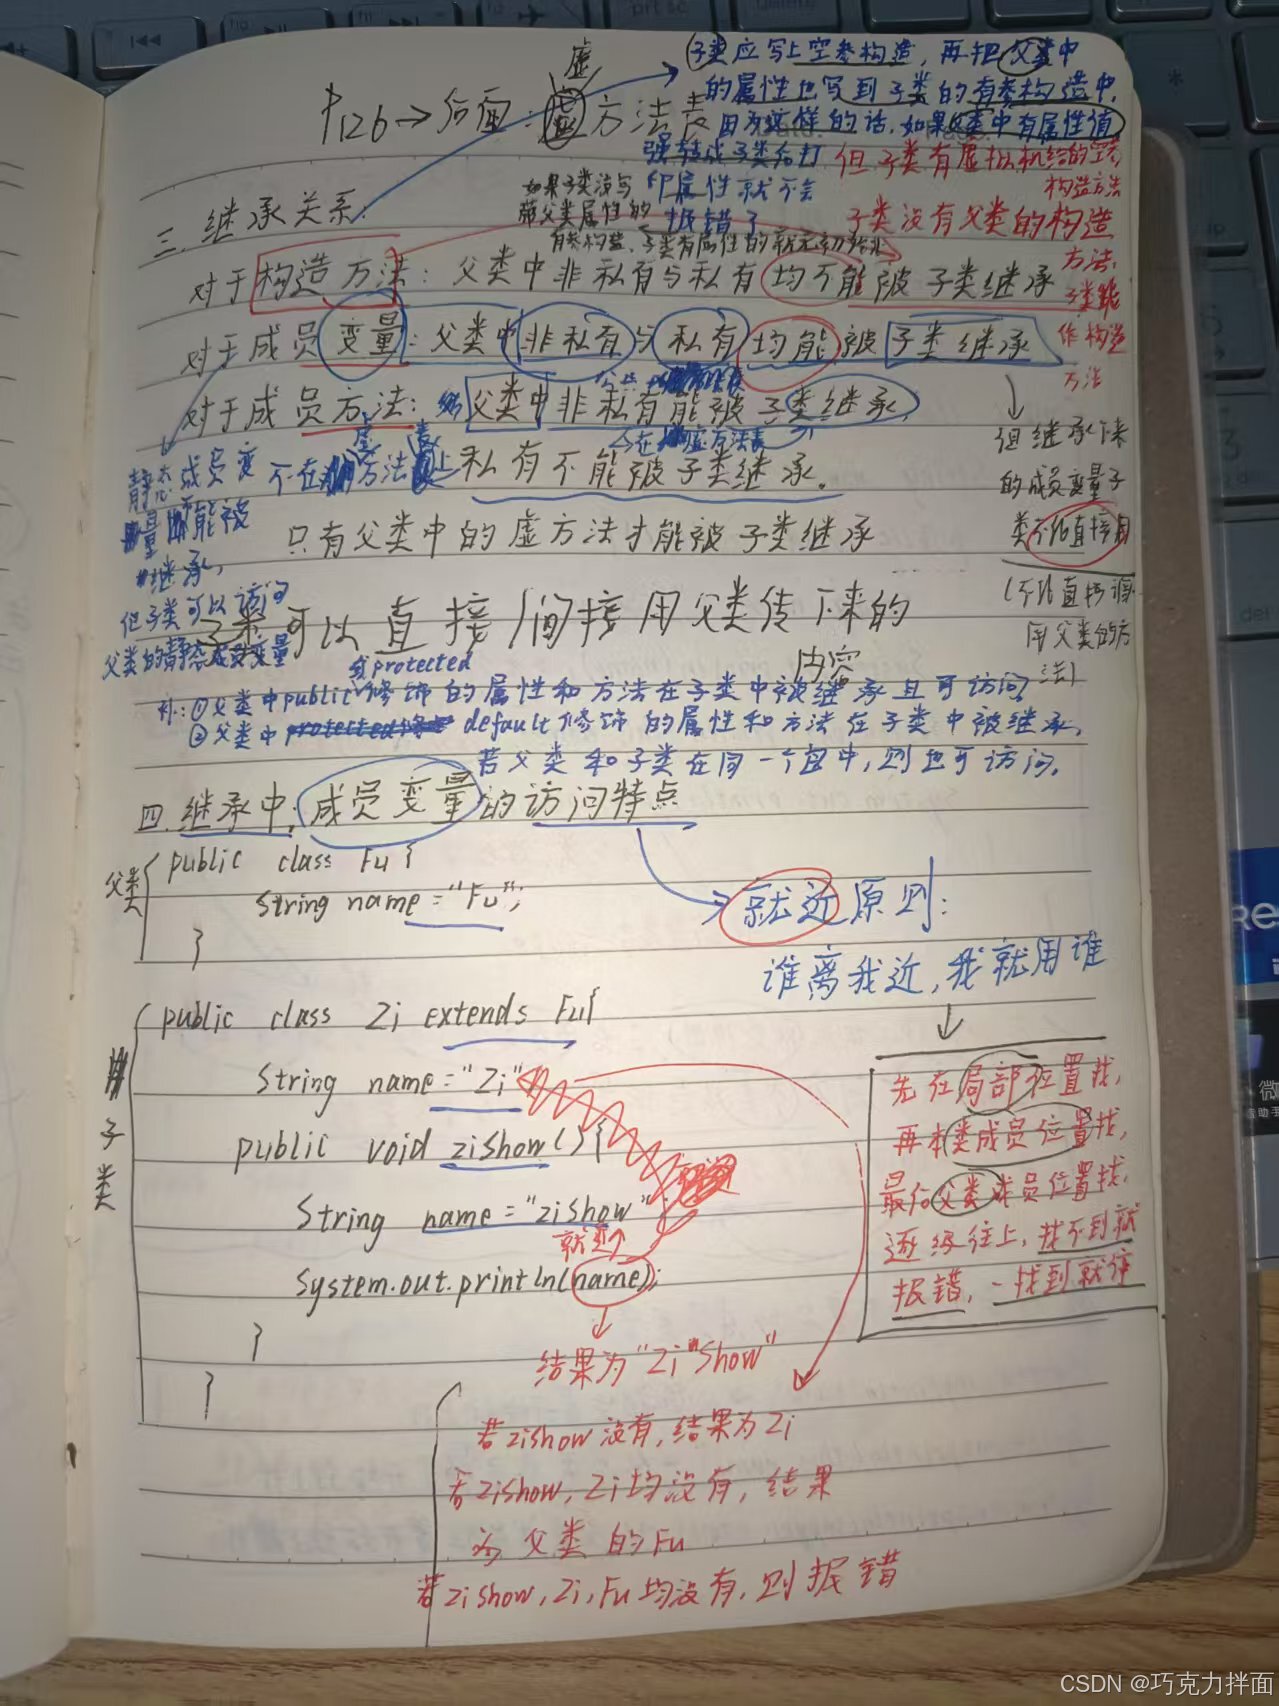 P126→后面:虚方法表
虚
子类应写上空参构造，再把父类中
的属性也写到子类的有参构造中，
因为这样的话，如果父类中有属性值
强转成子类后打
印属性就不会
报错了
但子类有虚拟机给的空参
构造方法
子类没有父类的构造
方法，
作构造
方法
如果子类没写
带父类属性的
有参构造，子类有属性的
三.继承关系:
对于构造方法：父类中非私有与私有均不能被子类继承
对于成员变量：父类中非私有与私有均能被子类继承
对于成员方法：父类中非私有能被子类继承，
不在虚方法表上私有不能被子类继承。
只有父类中的虚方法才能被子类继承
静态成员变
量不能被
继承，
但子类可以访问
父类的静态成员变量
但继承下来
的成员变量子
类不能直接用
(不能直接调
用父类的方
法)
子类可以直接/间接用父类传下来的
内容
或protected
补:①父类中public修饰的属性和方法在子类中被继承且可访问
②父类中default修饰的属性和方法在子类中被继承，
若父类和子类在同一个包中，则也可访问，
四.继承中:成员变量的访问特点
父类
public class Fu{
String name="Fu";
}
就近原则:
谁离我近，我就用谁
子类
public class Zi extends Fu{
String name="Zi"
public void zishow(){
String name="zishow";
就近
System.out.println(name);
}
}
先在局部位置找，
再本类成员位置找，
最后父类成员位置找，
逐级往上，找不到就
报错，一找到就停
结果为"Zi"Show"
若zishow没有，结果为Zi
若zishow，Zi均没有，结果
为父类的Fu
若zishow，Zi，Fu均没有，则报错
prt sc
delete
del
CSDN @巧克力拌面